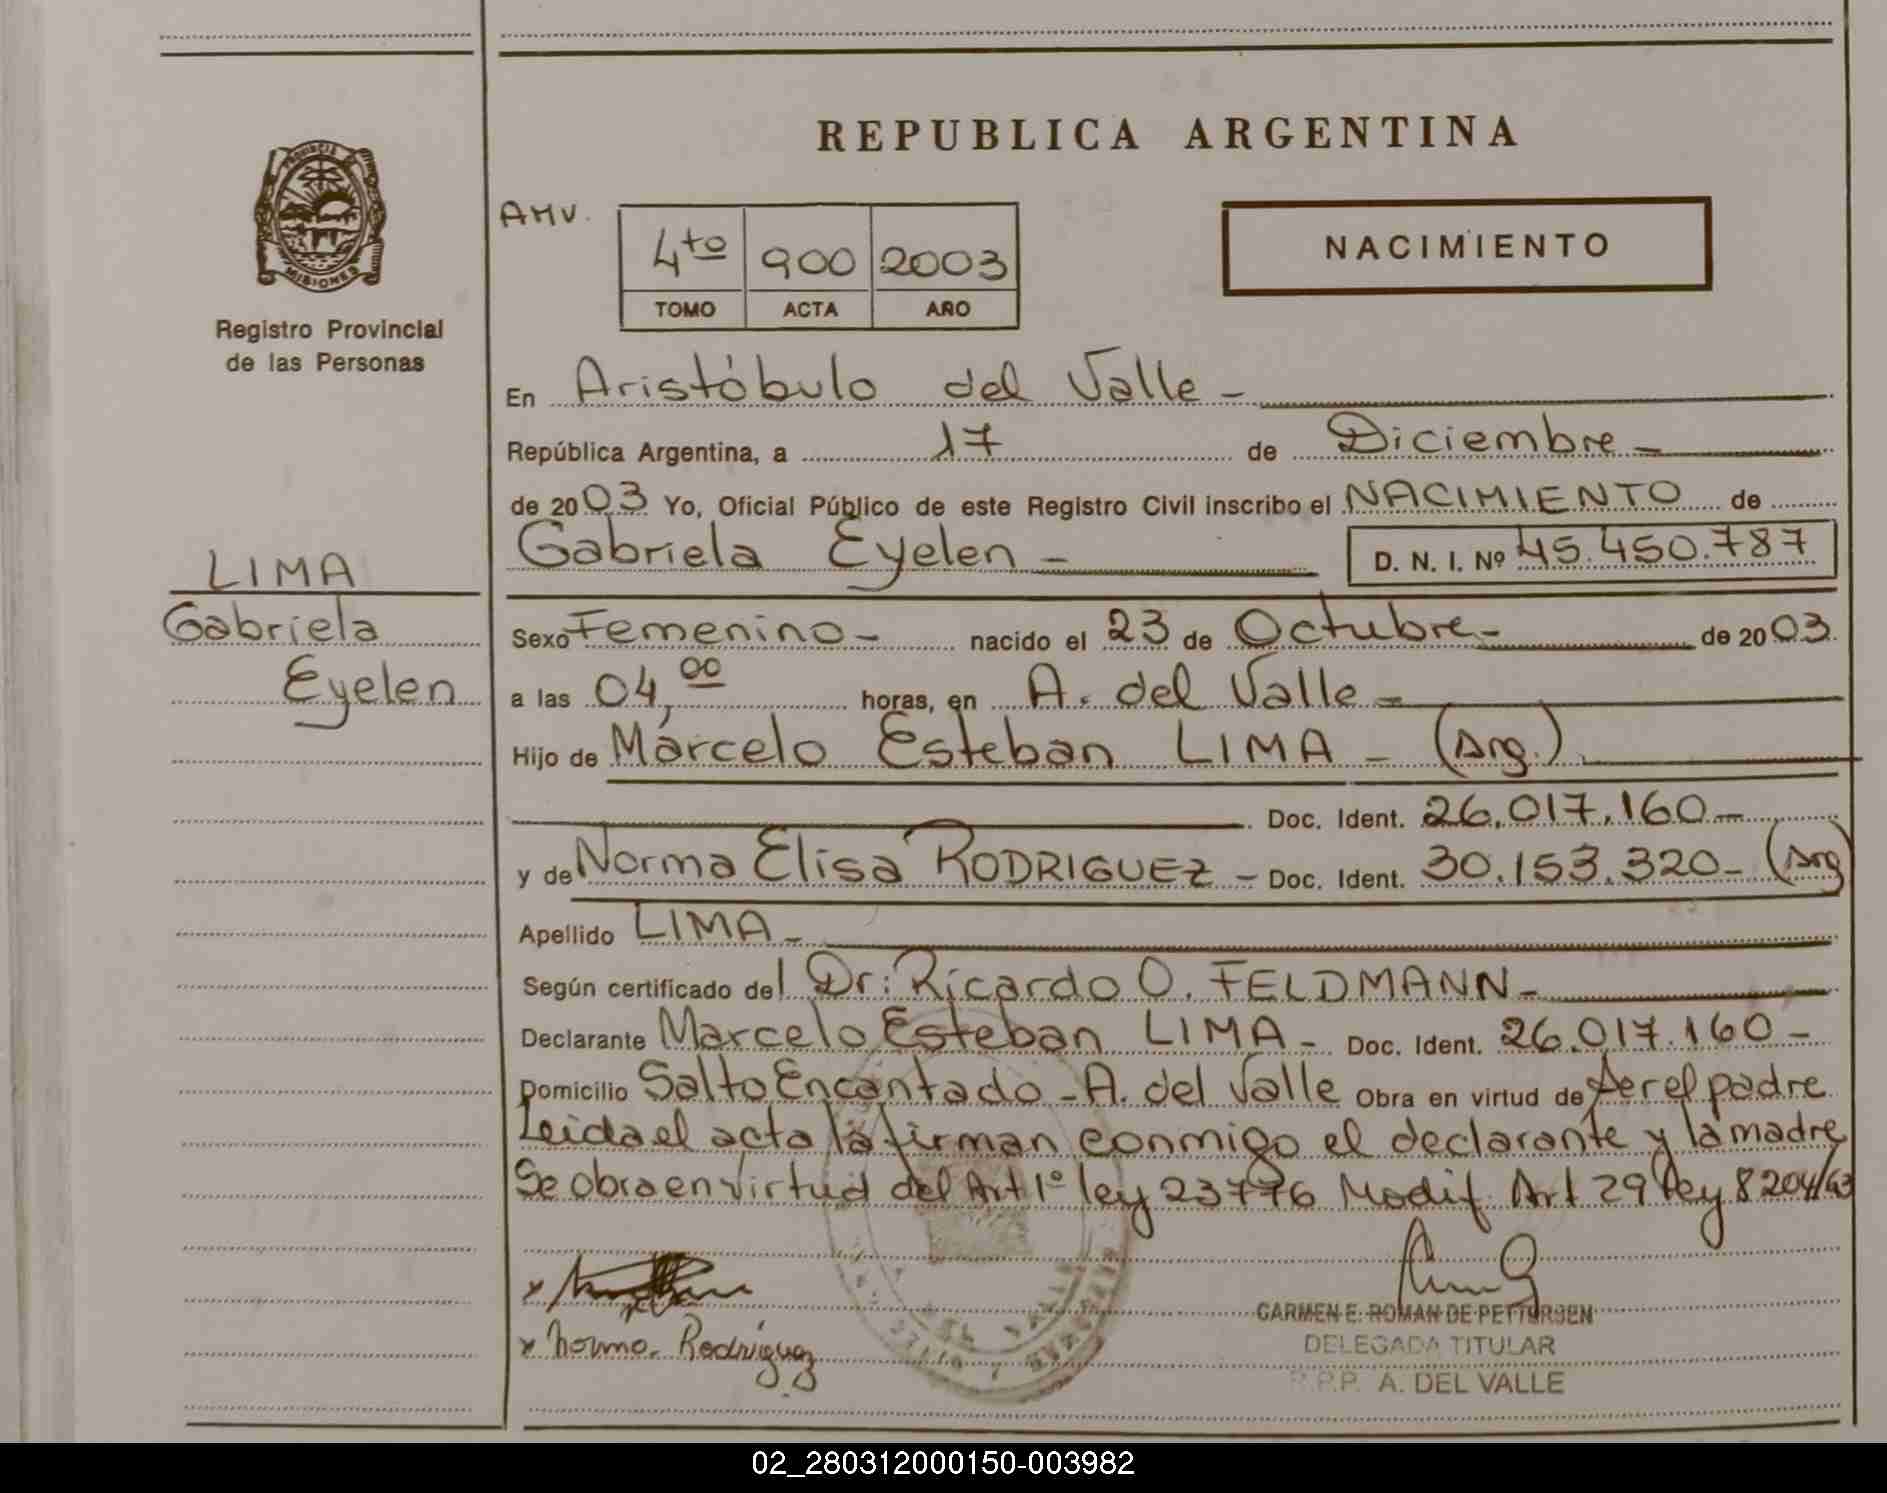 REPUBLICA ARGENTINA
PROVINCIA DE
MISIONES
Registro Provincial
de las Personas
AMV.
4to 900 2003
TOMO ACTA AÑO
NACIMIENTO
En Aristóbulo del Valle -
República Argentina, a 17 de Diciembre -
de 2003 Yo, Oficial Público de este Registro Civil inscribo el NACIMIENTO de
Gabriela Eyelen - D. N. I. Nº 45.450.787
LIMA
Gabriela
Eyelen
Sexo Femenino - nacido el 23 de Octubre - de 2003
a las 04,00 horas, en A. del Valle -
Hijo de Marcelo Esteban LIMA - (Arg.)
Doc. Ident. 26.017.160 -
y de Norma Elisa RODRIGUEZ - Doc. Ident. 30.153.320 - (Arg
Apellido LIMA -
Según certificado del Dr: Ricardo O. FELDMANN -
Declarante Marcelo Esteban LIMA - Doc. Ident. 26.017.160 -
Domicilio Salto Encantado - A. del Valle Obra en virtud de ser el padre
Leida el acta la firman conmigo el declarante y la madre
Se obra en virtud del Art 1º ley 23776 Modif. Art 29 ley 8204/63
x Norma Rodríguez
CARMEN E. ROMAN DE PETTERSEN
DELEGADA TITULAR
R.P.P. A. DEL VALLE
02_280312000150-003982